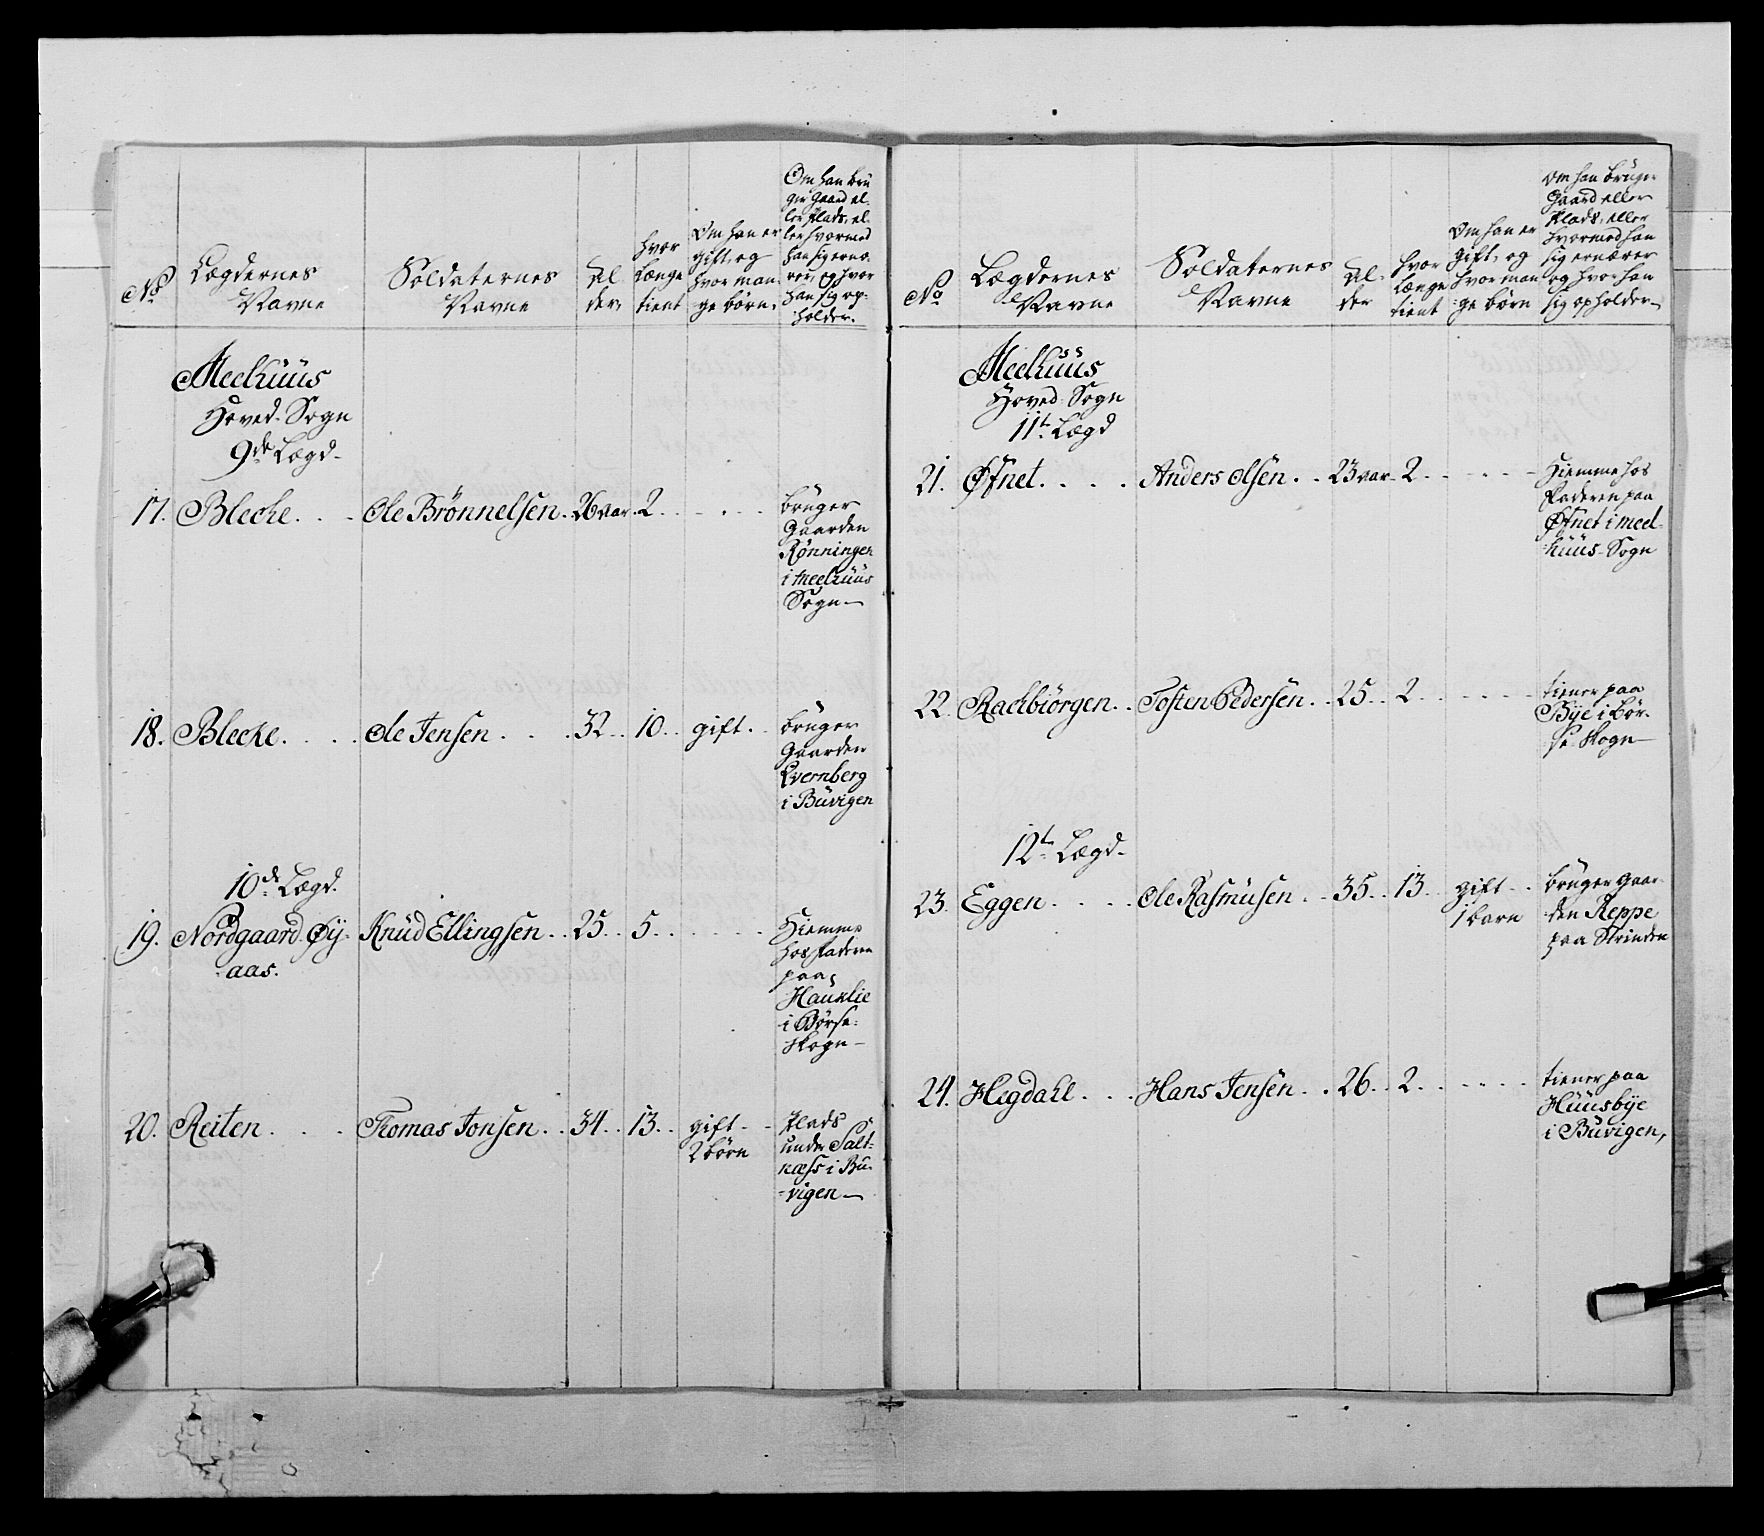 No
Lægdernes
Navne
Soldaternes
Navne
Al
der
hvor
længe
tient
Om han er
gift, og
hvor man-
ge børn.
Om han brü
ger Gaard el-
ler Plads, el-
ler hvormed
han sig ernæ-
rer, og hvor
han sig op-
holder.
Meelhüüs
Hoved-Sogn
9de Lægd-
17. Blecke. . . . Ole Brönnelsen. 26 aar. 2. . . . . .
brüger
Gaarden
Rønningen
i Meelhüüs
Sogn—
18. Blecke. . . . . Ole Jensen . . . . 32 . . 10. . gift. . .
brüger
Gaarden
Qvernberg
i Büvigen
10de Lægd.
19. Nordgaard Øÿ- Knüd Ellingsen. . 25. . 5. . . . . . .
aas.
Hiemme
hos faderen
paa
Haüklie
i Börse-
skogn—
20. Reiten . . . . Thomas Jonsen. . 34. . 13. . gift . . .
2 börn
Plads
under Salt-
næss i Bu-
-vigen—
No
Lægdernes
Navne
Soldaternes
Navne
Al-
der
hvor
længe
tient
Om han er
gift, og
hvor man
ge børn
Om han brüger
Gaard eller
Plads, eller
hvormed han
sig ernærer
og hvor han
sig opholder—
Meelhüüs
Hoved-Sogn
11te Lægd
21. Øfnet. . . . . Anders Olsen. . . 23 aar. 2. . . . . .
Hiemme hos
Faderen paa
Øfnet i Meel-
-hüüs-Sogn
22. Rachbiörgen. . Tosten Pedersen. . 25. . 2. . . . . .
tiener paa
Bÿe i Bör-
se-skogn—
12te Lægd-
23. Eggen. . . . . Ole Rasmüsen. . 35. . 13. . gift . .
1 barn
brüger Gaar-
-den Reppe
paa Strinden
24. Hegdahl. . . . Hans Jensen. . . 26. . 2. . . . . .
tiener paa
Hüüsbÿe
i Büvigen,